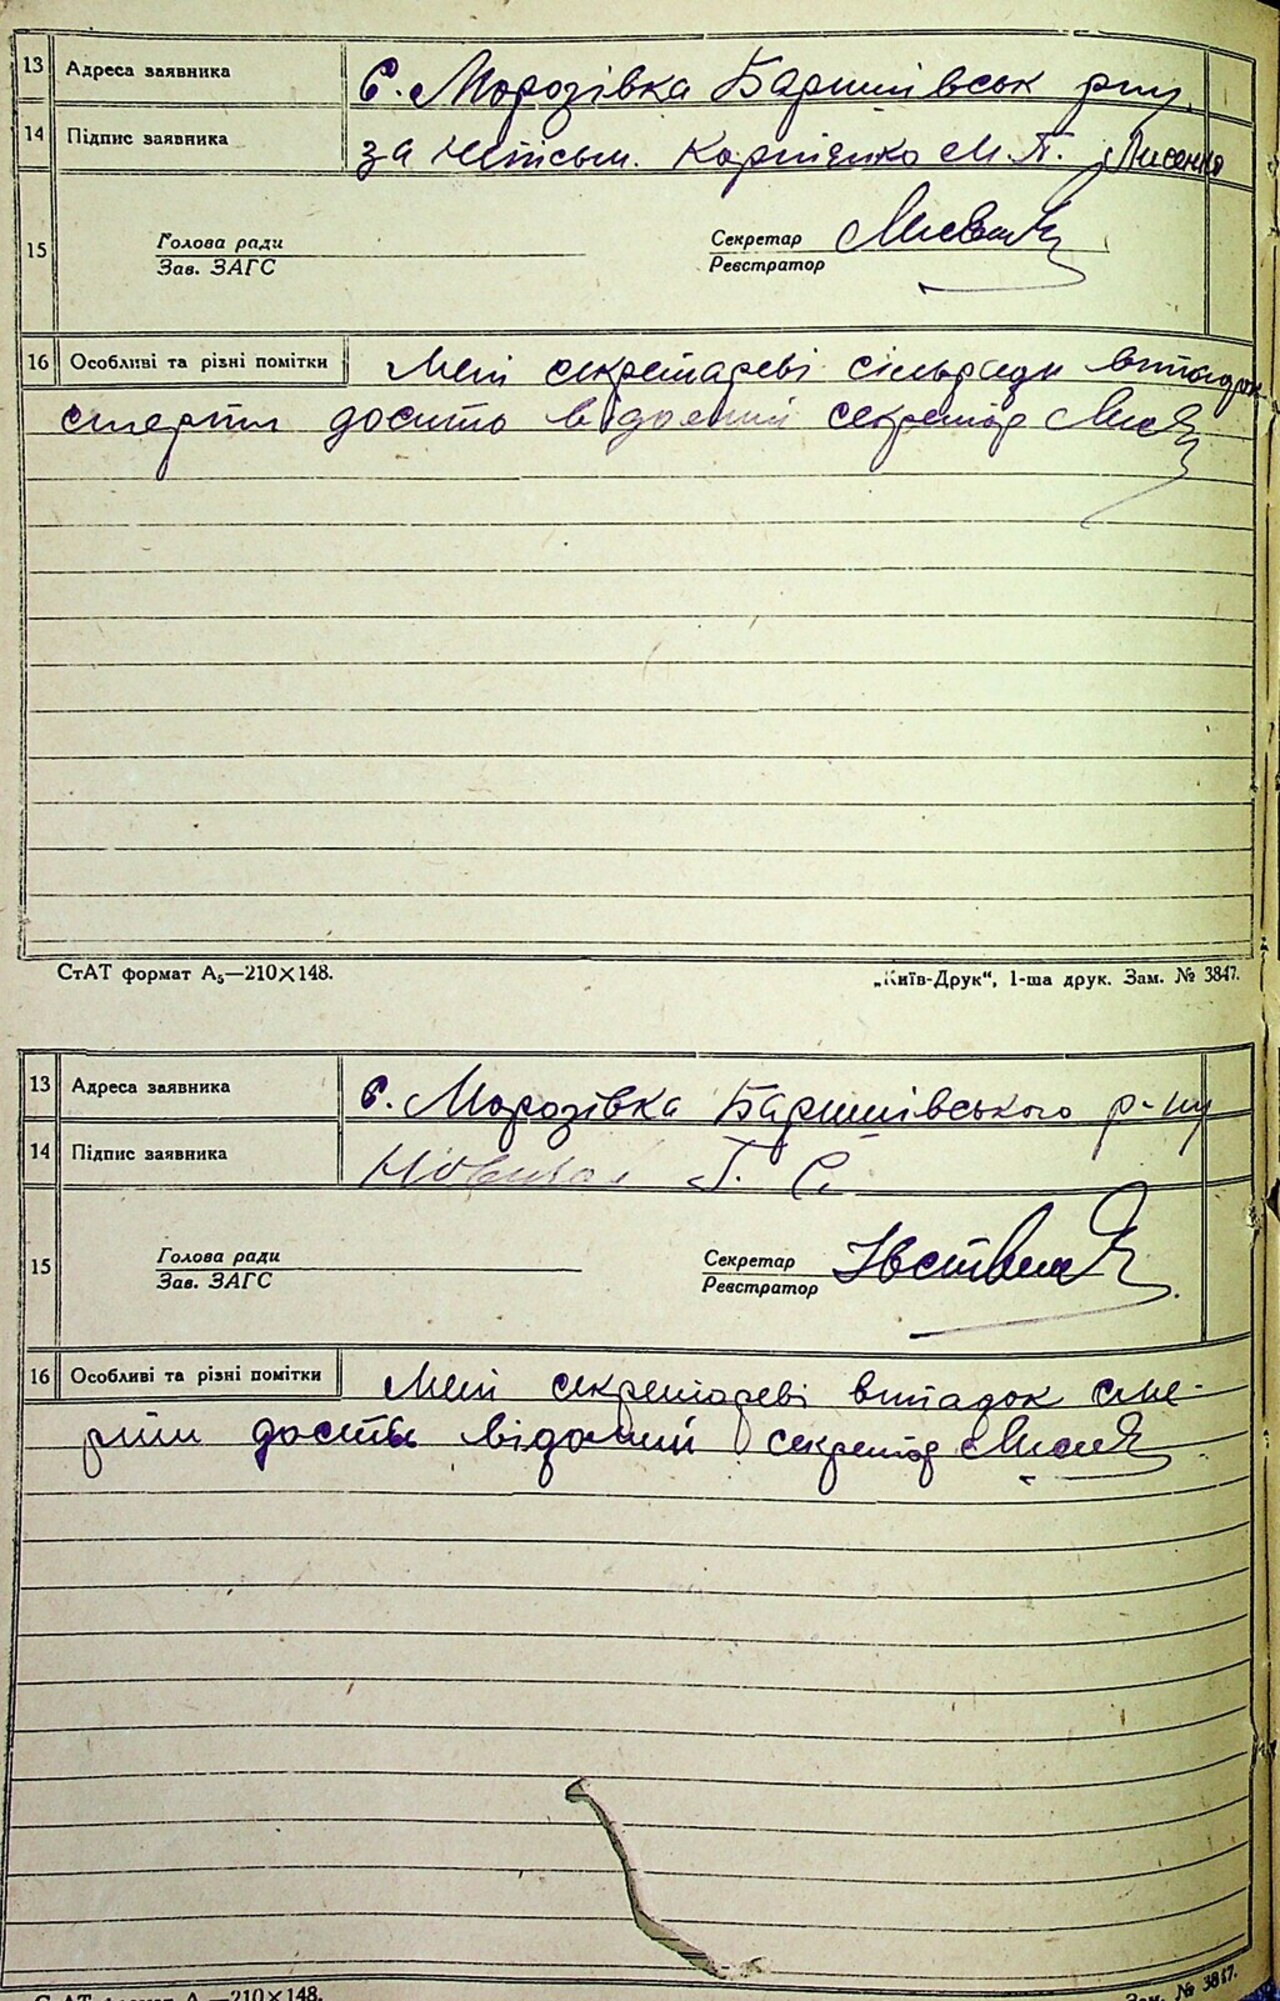 13 Адреса заявника С. Морозівка Баришівськ рну.
14 Підпис заявника за неписьм. Карпенко М. П. Лисенко
Голова ради Секретар
15
Зав. ЗАГС Реєстратор
16 Особливі та різні помітки Мені секретареві сільради випадок
смерти досить відомий секретар
СтАТ формат А₅—210×148. „Київ-Друк“, 1-ша друк. Зам. № 3847.
13 Адреса заявника С. Морозівка Баришівського р-ну
14 Підпис заявника Г. С.
Голова ради Секретар
15
Зав. ЗАГС Реєстратор
16 Особливі та різні помітки Мені секретареві випадок сме-
рти досить відомий секретар
СтАТ формат А₅—210×148. Зам. № 3847.